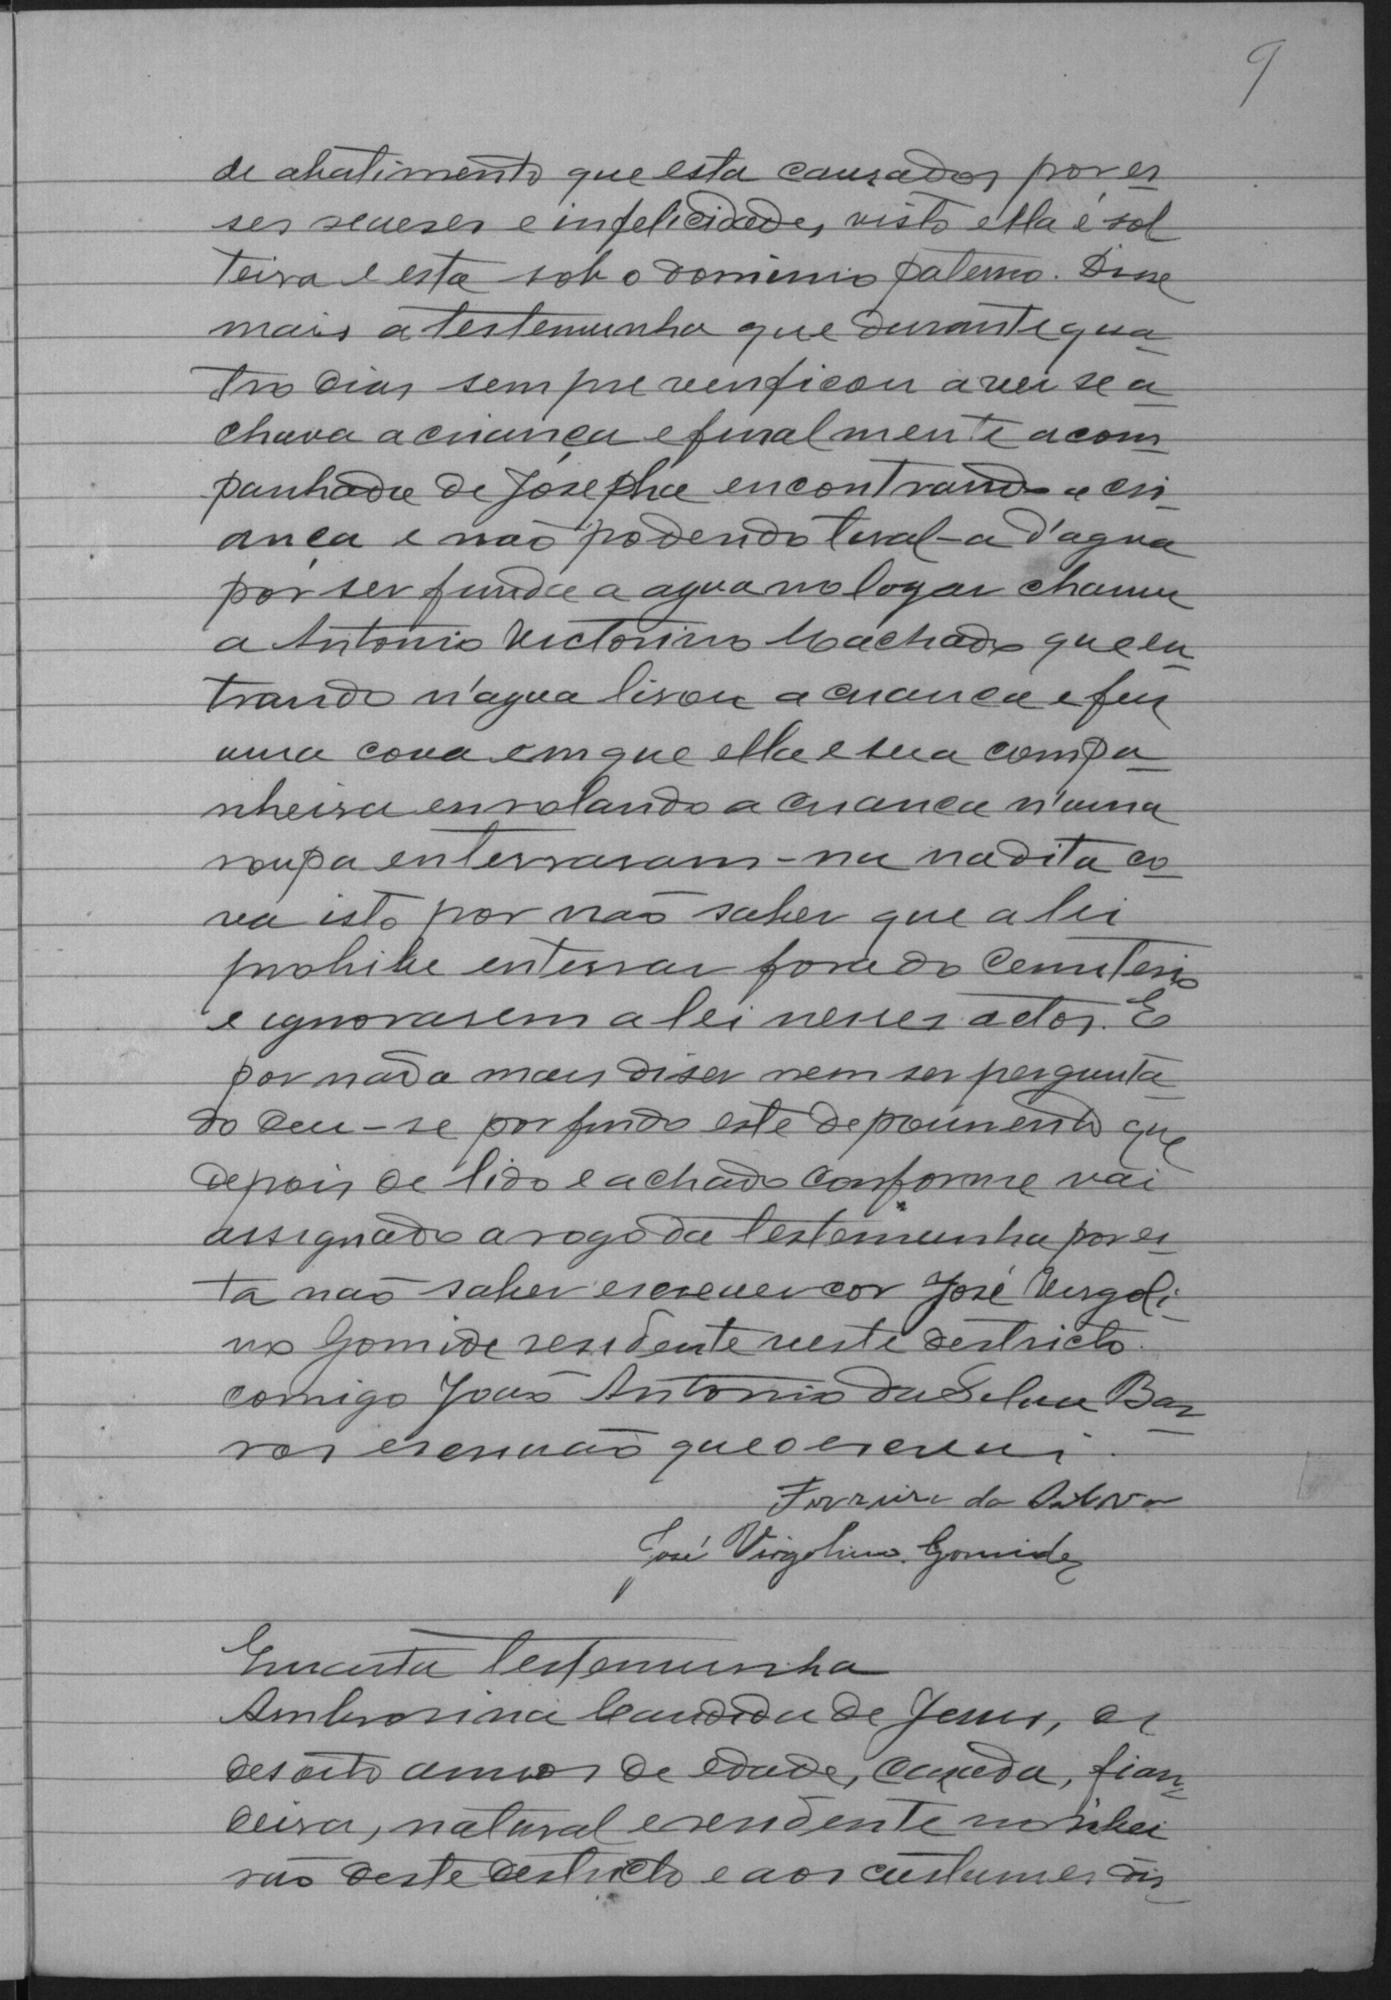 9
de abatimento que esta causados por es
ses reveses e infelicidade, visto ella é sol
teira e esta sob o dominio paterno. Disse
mais a testemunha que durante qua
tro dias sempre verificou a ver se a
chava a criança e finalmente acom
panhada de Josepha encontrando a cri
ança e não podendo tiral-a d'agua
por ser funda a agua no logar chamou
a Antonio Victorino Machado que en
trando n'agua tirou a criança e fez
uma cova em que ella e sua compa
nheira enrolando a criança n'uma
roupa enterraram-na na dita co
va isto por não saber que a lei
prohibe enterrar fora do Cemiterio
e ignorarem a lei nesses actos. E
por nada mais diser nem ser pergunta
do deu-se por findo este depoimento que
depois de lido e achado conforme vai
assignado a rogo da testemunha por es
ta não saber escrever por José Virgoli
no Gomide residente neste destricto
comigo João Antonio da Silva Bar
ros escrivão que o escrevi.
Ferreira da Silva
José Virgolino Gomide
Quarta testemunha
Ambrosina Candida de Jesus, de
desoito annos de edade, casada, fian
deira, natural e residente no ribei
rão deste destricto e aos custumes dis